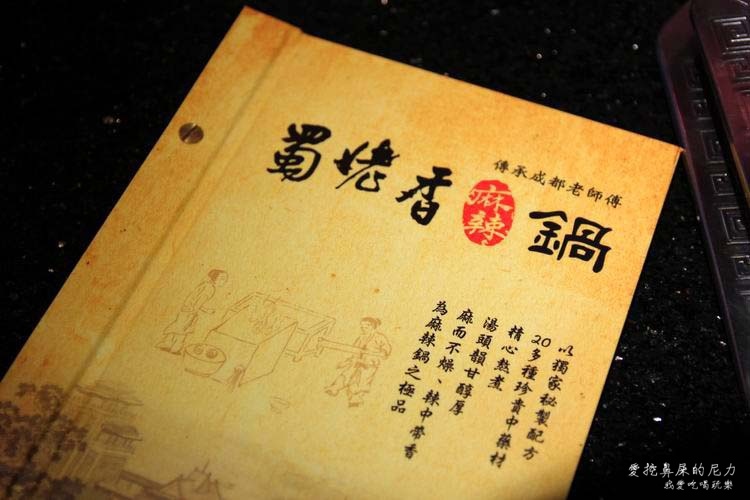 傳承成都老師傅
蜀姥香麻辣鍋
以獨家秘製配方
20多種珍貴中藥材
精心熬煮
湯頭韻甘醇厚
麻而不燥、辣中帶香
為麻辣鍋之極品
愛挖鼻屎的尼力
我愛吃喝玩樂